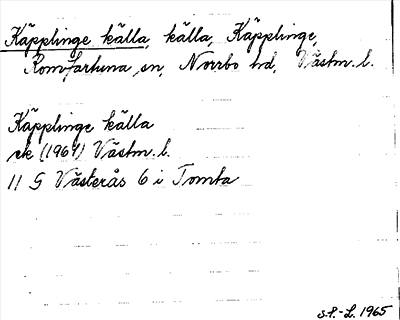 Käpplinge källa, källa, Käpplinge,
Romfartuna sn, Norrbo hd, Västm. l.
Käpplinge källa
ek (1964) Västm. l.
11 G Västerås 6 i Tomta
S.P.-L. 1965